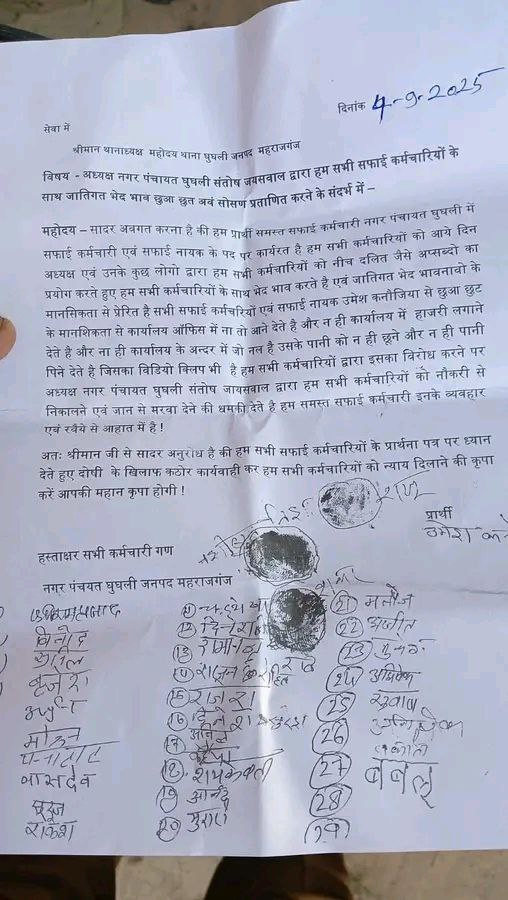 दिनांक 4-9-2025
सेवा में
श्रीमान थानाध्यक्ष महोदय थाना घुघली जनपद महराजगंज
विषय - अध्यक्ष नगर पंचायत घुघली संतोष जयसवाल द्वारा हम सभी सफाई कर्मचारियों के
साथ जातिगत भेद भाव छुआ छुत अवं सोसण प्रताणित करने के संदर्भ में –
महोदय – सादर अवगत करना है की हम प्रार्थी समस्त सफाई कर्मचारी नगर पंचायत घुघली में
सफाई कर्मचारी एवं सफाई नायक के पद पर कार्यरत है हम सभी कर्मचारियों को आये दिन
अध्यक्ष एवं उनके कुछ लोगो द्वारा हम सभी कर्मचारियों को नीच दलित जैसे अप्सब्दो का
प्रयोग करते हुए हम सभी कर्मचारियों के साथ भेद भाव करते है एवं जातिगत भेद भावनावो के
मानसिकता से प्रेरित है सभी सफाई कर्मचरियों एवं सफाई नायक उमेश कनौजिया से छुआ छुट
के मानशिकता से कार्यालय ऑफिस में ना तो आने देते है और न ही कार्यालय में हाजरी लगाने
देते है और ना ही कार्यालय के अन्दर में जो नल है उसके पानी को न ही छूने और न ही पानी
पिने देते है जिसका विडियो क्लिप भी है हम सभी कर्मचारियों द्वारा इसका विरोध करने पर
अध्यक्ष नगर पंचायत घुघली संतोष जायसवाल द्वारा हम सभी कर्मचारियों को नौकरी से
निकालने एवं जान से मरवा देने की धमकी देते है हम समस्त सफाई कर्मचारी इनके व्यवहार
एवं रवैये से आहात में है !
अतः श्रीमान जी से सादर अनुरोध है की हम सभी सफाई कर्मचारियों के प्रार्थना पत्र पर ध्यान
देते हुए दोषी के खिलाफ कठोर कार्यवाही कर हम सभी कर्मचारियों को न्याय दिलाने की कृपा
करें आपकी महान कृपा होगी !
प्रार्थी
उमेश
हस्ताक्षर सभी कर्मचारी गण
नगर पंचयत घुघली जनपद महराजगंज
विनोद
बृजेश
मोहन
वासदेव
सूरज
राकेश
(15) राजेश
(16)
(17) अनिल
(18)
(19)
(20) मुरारी
(21) मनोज
(22) अजीत
(23)
(24) अभिषेक
(25)
(26)
(27) बबलू
(28)
(29)